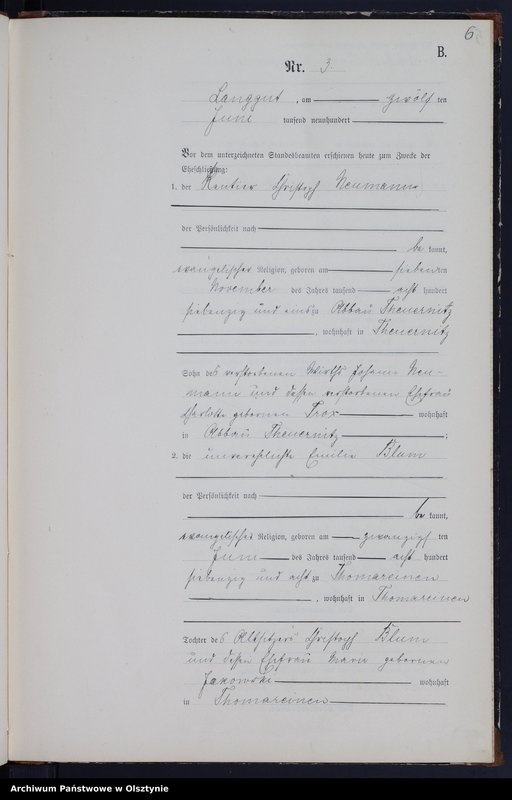 6
B.
Nr. 3.
Langgut, am zwölf ten
Juni tausend neunhundert
Vor dem unterzeichneten Standesbeamten erschienen heute zum Zwecke der
Eheschließung:
1. der Rentier Christoph Neumann
der Persönlichkeit nach
be kannt,
evangelischer Religion, geboren am siebenten
November des Jahres tausend acht hundert
siebenzig und eins zu Abbau Theuernitz
, wohnhaft in Theuernitz
Sohn des verstorbenen Wirths Johann Neu-
mann und dessen verstorbenen Ehefrau
Charlotte geborenen Trox wohnhaft
in Abbau Theuernitz ;
2. die unverehelichte Emilie Blum
der Persönlichkeit nach
be kannt,
evangelischer Religion, geboren am zwanzigs ten
Juni des Jahres tausend acht hundert
siebenzig und acht zu Thomareinen
, wohnhaft in Thomareinen
Tochter des Altsitzers Christoph Blum
und dessen Ehefrau Marie geborenen
Jakowski wohnhaft
in Thomareinen
Archiwum Państwowe w Olsztynie